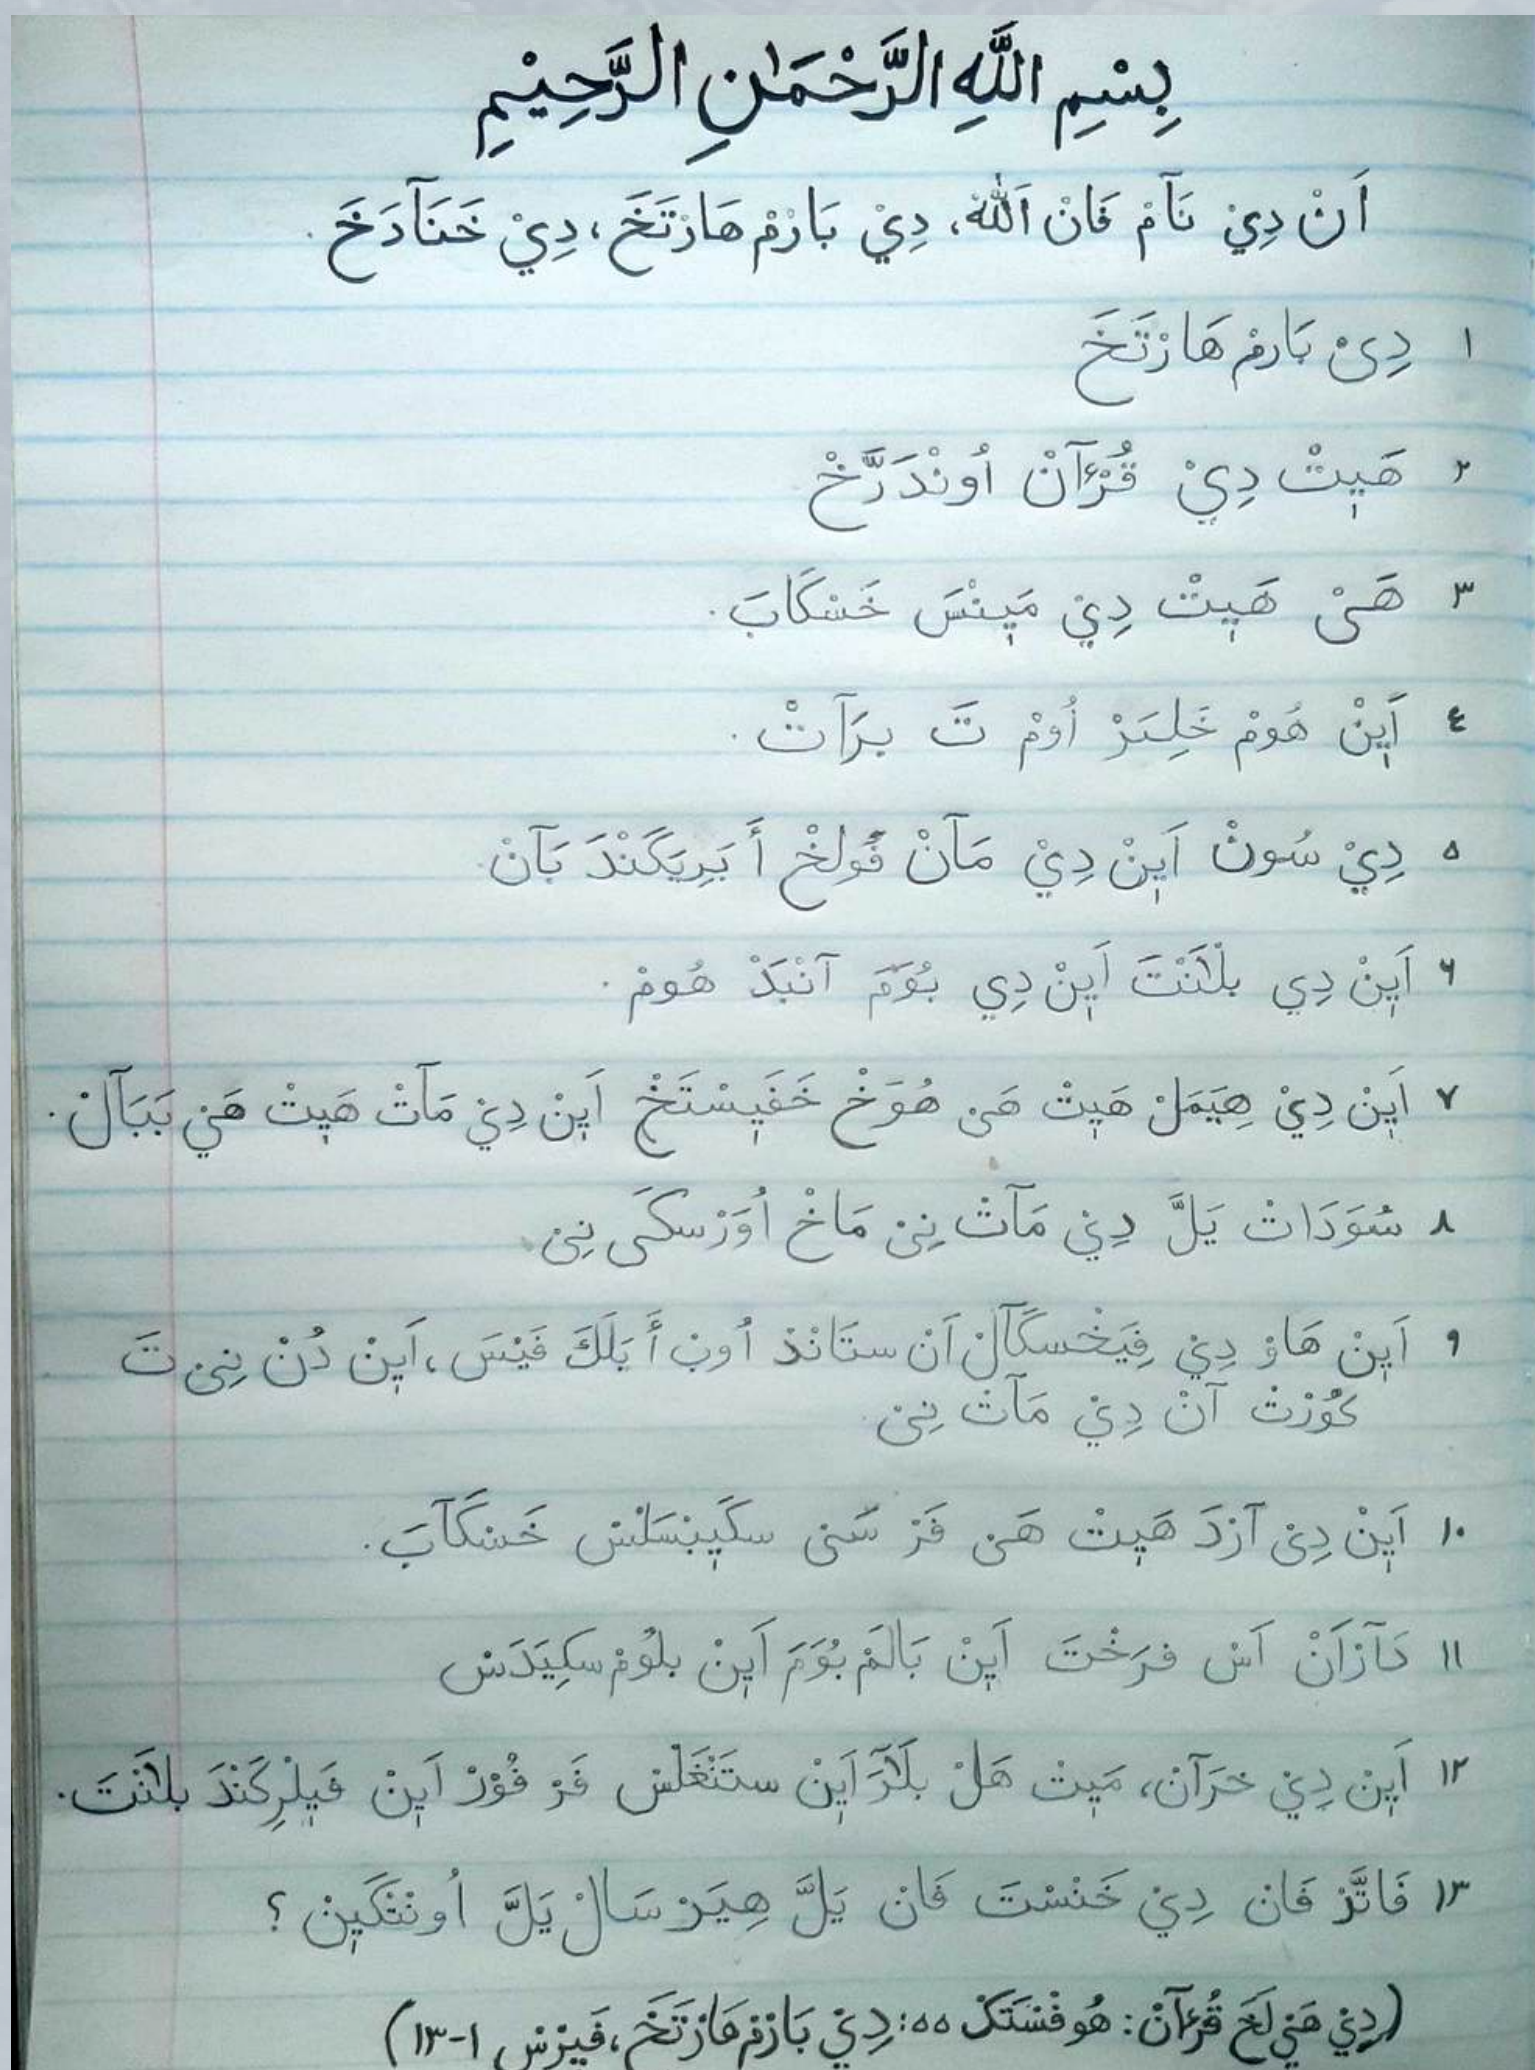 بِسْمِ اللَّهِ الرَّحْمَٰنِ الرَّحِيْمِ
اَنْ دِيْ نَآمْ فَانْ اَللّٰهْ، دِيْ بَارْمْ هَارْتَخَ، دِيْ خَنَآدَخَ.
١ دِىْ بَارمْ هَارْتَخَ
٢ هَيٖتْ دِيْ قُرْءَآنْ اُونْدَرَّخْ
٣ هَىْ هَيٖتْ دِيْ مَيٖنْسَ خَسْكَابَ.
٤ اَيٖنْ هُومْ خَلِيَرْ اُومْ تَ برَآتْ.
٥ دِيْ سُونْ اَيٖنْ دِيْ مَآنْ فُولخْ أَ بَرِيَكَنْدَ بَآنْ.
٦ اَيٖنْ دِي بلْاَنْتَ اَيٖنْ دِي بُوَمَ آنْبَدْ هُومْ.
٧ اَيٖنْ دِيْ هِيَمَلْ هَيٖتْ هَىْ هُوَخْ خَفَيٖسْتَخْ اَيٖنْ دِيْ مَآتْ هَيٖتْ هَيْ بَبَآلْ.
٨ سُوَدَاتْ يَلَّ دِيْ مَآتْ نِىْ مَاخْ اُوَرْسكَىْ نِىْ.
٩ اَيٖنْ هَاوْ دِيْ فِيَخْسكَآلْ اَنْ ستَانْدْ اُوبْ أَ يَلَكَ فَيْسَ، اَيٖنْ دُنْ نِىْ تَ
كُوْرْتْ آنْ دِيْ مَآتْ نِىْ.
١٠ اَيٖنْ دِىْ آرْدَ هَيٖتْ هَىْ فَرْ سَىْ سكَيٖبْسَلْسْ خَسْكَآبَ.
١١ دَآرْاَنْ اَسْ فرَخْتَ اَيٖنْ بَالَمْ بُوَمَ اَيٖنْ بلُومْ سكِيَدَسْ
١٢ اَيٖنْ دِيْ خرَآنْ، مَيٖتْ هَلْ بلَاَرَ اَيٖنْ ستَنْغَلْسْ فَرْ فُوْرْ اَيٖنْ فَيٖلْرِكَنْدَ بلْاَنْتَ.
١٣ فَاتَّرْ فَانْ دِيْ خَنْسْتَ فَانْ يَلَّ هِيَرْ سَالْ يَلَّ اُونْتْكَيٖنْ؟
(دِيْ هَيْلَخَ قُرْءَآنْ: هُوفْسْتَكْ ٥٥: دِيْ بَارْمْ هَارْتَخَ، فَيٖرْسْ ١-١٣)